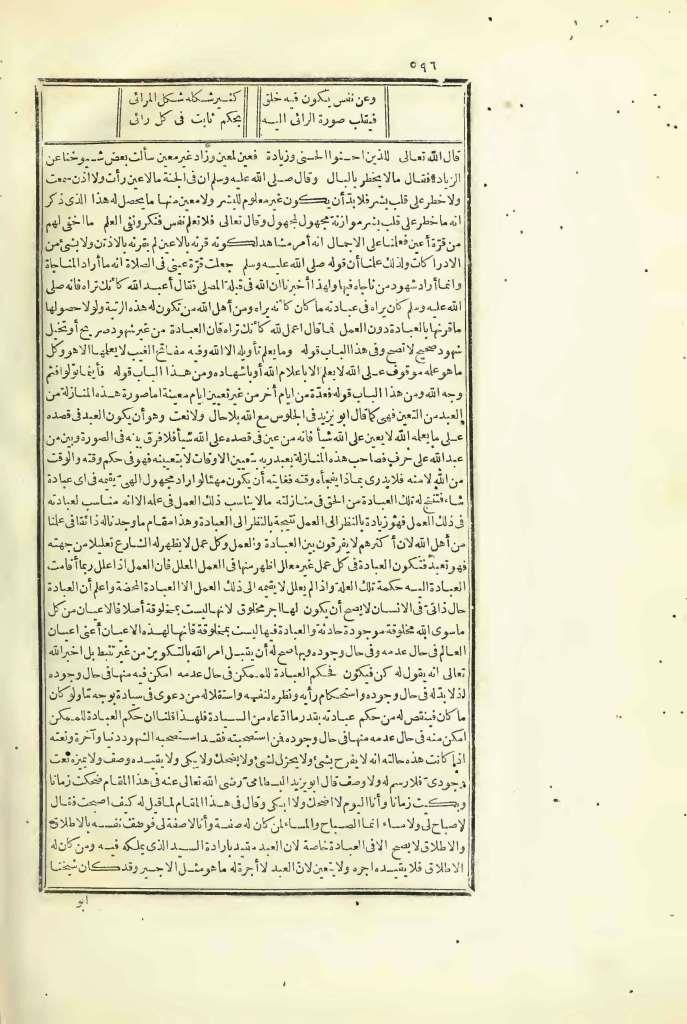 ٥٩٦
وعن نفس يكون فيه خلق كثير شكله شكل المرائى
فيقلب صورة الرائى اليه بحكم ثابت فى كل رائى
قال الله تعالى للذين احسنوا الحسنى وزيادة فعين لمعين وزاد غير معين سألت بعض شيوخنا عن
الزيادة فقال مالا يخطر بالبال وقال صلى الله عليه وسلم ان فى الجنة مالا عين رأت ولا اذن سمعت
ولا خطر على قلب بشر فلا بد أن يكون غير معلوم للبشر ولا معين منها ما يحصل له هذا الذى ذكر
انه ما خطر على قلب بشر موازنة مجهول لمجهول وقال تعالى فلا تعلم نفس فنكر ونفى العلم ما اخفى لهم
من قرّة أعين فعلمنا على الاجمال انه أمر مشاهد لكونه قرنه بالاعين لم يقرنه بالاذن ولا بشئ من
الادراكات ولذلك علمنا أن قوله صلى الله عليه وسلم جعلت قرّة عينى فى الصلاة انه ما أراد المناجاة
وانما أراد شهود من ناجاه فيها ولهذا أخبرنا ان الله فى قبلة المصلى فقال أعبد الله كأنك تراه فانه صلى
الله عليه وسلم كان يراه فى عبادته ما كان كأنه يراه ومن أهل الله من تكون له هذه الرتبة ولولا حصولها
ما قرنها بالعبادة دون العمل فما قال اعمل لله كأنك تراه فان العبادة من غير شهود صريح أو تخيل
شهود صحيح لا تصح وفى هذا الباب قوله وما يعلم تأويله الا الله وفيه مفاتح الغيب لا يعلمها الا هو وكل
ما هو علمه موقوف على الله لا يعلم الا باعلام الله أو باشهاده ومن هذا الباب قوله فأينما تولوا فثم
وجه الله ومن هذا الباب قوله فعدّة من ايام أخر من غير تعيين ايام معينة اما صورة هذه المنازلة من
العبد من التعين فهى كما قال ابو يزيد فى الجلوس مع الله بلا حال ولا نعت وهو أن يكون العبد فى قصده
على ما يعلمه الله لا يعين على الله شيأ فانه من عين فى قصده على الله شيأ فلا فرق بينه فى الصورة وبين من
عبد الله على حرف فصاحب هذه المنازلة يعبد ربه بتعيين الاوقات لا بتعيينه فهو فى حكم وقته والوقت
من الله لا منه فلا يدرى بماذا يفجأه وقته فغايته أن يكون مهيئا لوارد مجهول الهى يقيمه فى اى عبادة
شاء فتنتج له تلك العبادة من الحق فى منازلته مالا يناسب ذلك العمل فى علمه الا انه مناسب لعبادته
فى ذلك العمل فهو زيادة بالنظر الى العمل نتيجة بالنظر الى العبادة وهذا مقام ما وجدنا له ذائقا فى علمنا
من أهل الله لان أكثرهم لا يفرقون بين العبادة والعمل وكل عمل لا يظهر له الشارع تعليلا من جهته
فهو تعبد فتكون العبادة فى كل عمل غير معلل اظهر منها فى العمل المعلل فان العمل اذا علل ربما أقامت
العبادة اليه حكمة تلك العلة واذا لم يعلل لا يقيمه الى ذلك العمل الا العبادة المحضة واعلم أن العبادة
حال ذاتىّ فى الانسان لا يصح أن يكون لها اجر مخلوق لانها ليست بمخلوقة أصلا فالاعيان من كل
ما سوى الله مخلوقة موجودة حادثة والعبادة فيها ليست بمخلوقة فانها لهذه الاعيان أعنى اعيان
العالم فى حال عدمه وفى حال وجوده وبها صح له أن يقبل امر الله بالتكوين من غير تثبط بل اخبر الله
تعالى انه يقول له كن فيكون فحكم العبادة للممكن فى حال عدمه امكن فيه منها فى حال وجوده
اذ لا بدّ له فى حال وجوده واستحكام رأيه ونظره لنفسه واستقلاله من دعوى فى سيادة بوجه ما ولو كان
ما كان فينقص له من حكم عبادته بقدر ما ادّعاه من السيادة فلهذا قلنا ان حكم العبادة للممكن
امكن منه فى حال عدمه منها فى حال وجوده فمن استصحبته فقد استصحبه الشهود دنيا وآخرة ونعته
اذا كانت هذه حالته انه لا يفرح بشئ ولا يحزن لشئ ولا يضحك ولا يبكى ولا يقيده وصف ولا يميزه نعت
وجودىّ فلا رسم له ولا وصف قال ابو يزيد البسطامى رضى الله تعالى عنه فى هذا المقام ضحكت زمانا
وبكيت زمانا وأنا اليوم لا اضحك ولا ابكى وقال فى هذا المقام لما قيل له كيف اصبحت فقال
لا صباح لى ولا مساء انما الصباح والمساء لمن كان له صفة وأنا لا صفة لى فوصف نفسه بالاطلاق
والاطلاق لا يصح الا فى العبادة خاصة لان العبد مقيد بارادة السيد الذى يملكه فيه ومن كان له
الاطلاق فلا يقيده اجره ولا يتعين لان العبد لا أجرة له ما هو مثل الاجير وقد كان شيخنا
ابو